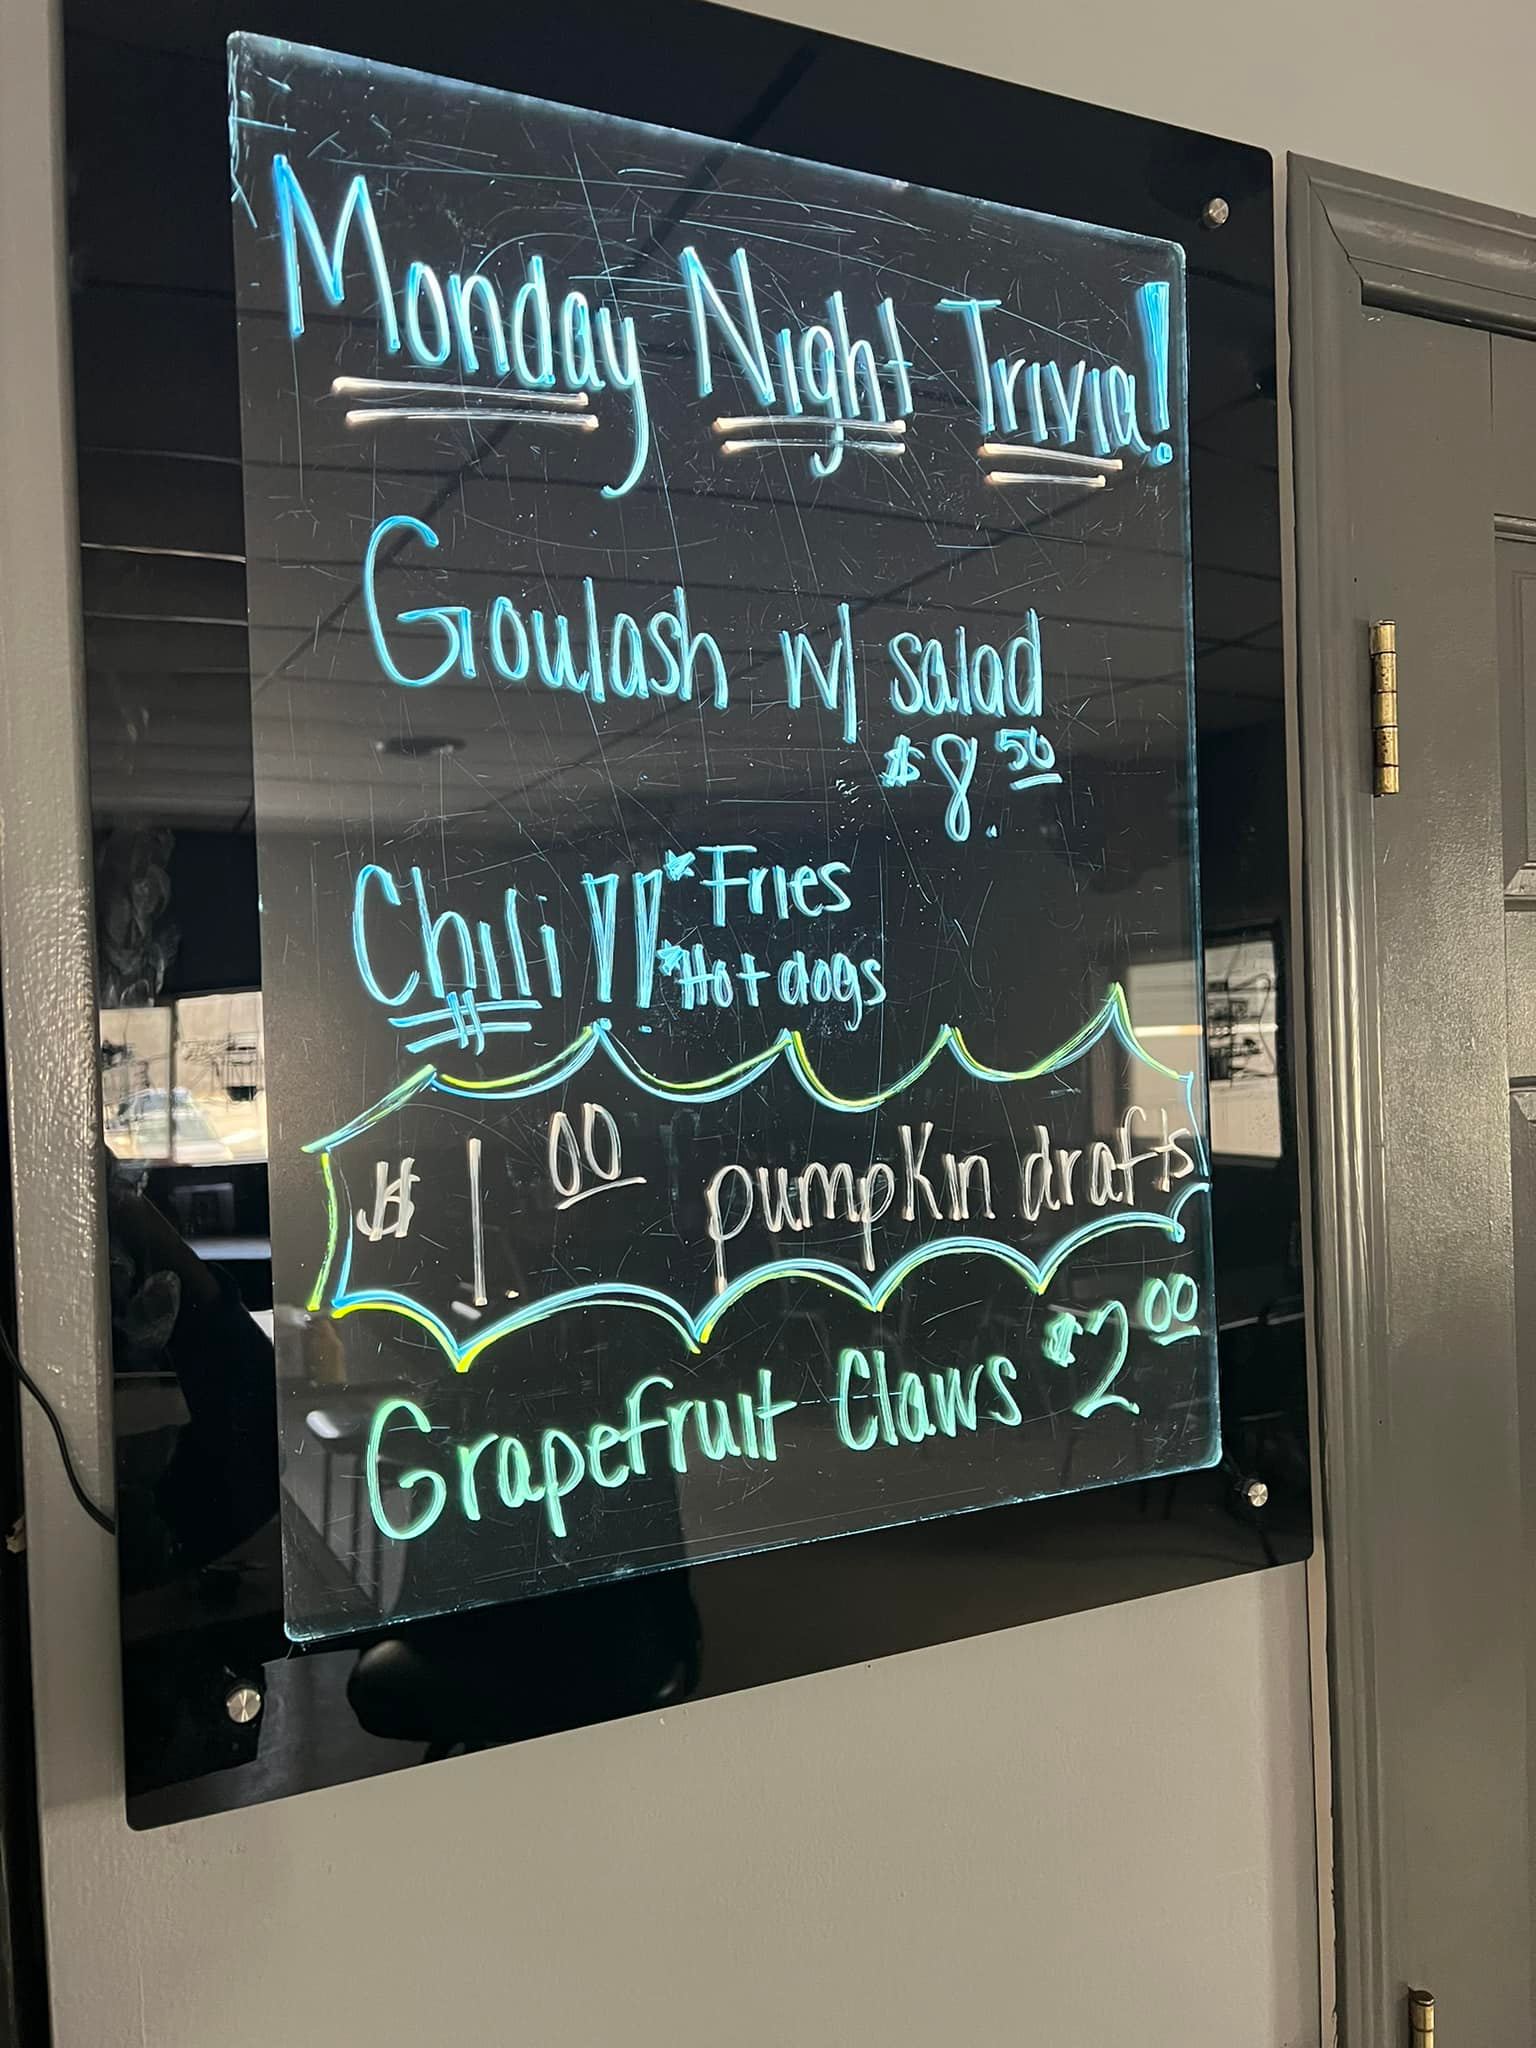 Monday Night Trivia!
Goulash w/ salad
$8.50
Chili!! *Fries
*Hot dogs
$1.00 pumpkin drafts
Grapefruit Claws $2.00